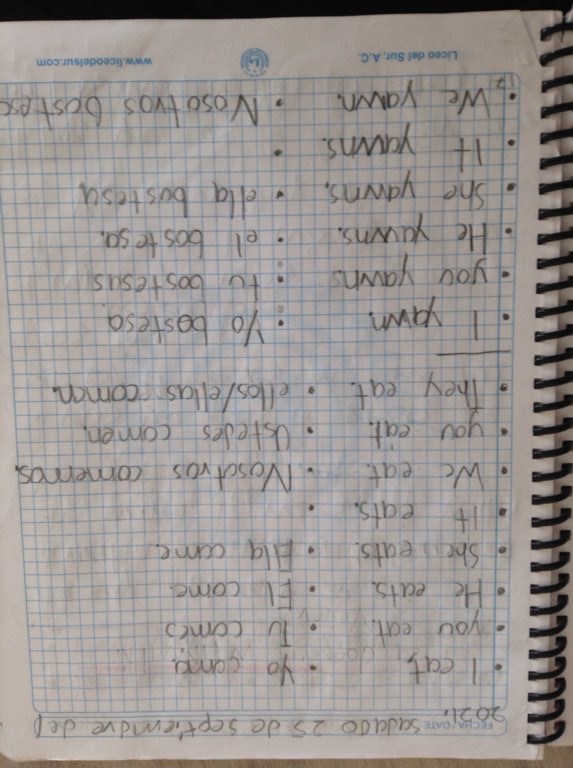 FECHA/DATE sadado 25 de septiemdre del
2021.
• I eat, • Yo como.
• you eat. • Tu comes
• He eats. • El come.
• She eats. • Ella come.
• It eats. •
• We eat. • Nosotros comemos.
• you eat. • Ustedes comen.
• They eat. • ellos/ellas comen.
• I yawn. • Yo bostesa.
• you yawns • tu bostesas
• He yawns. • el bostesa.
• She yawns. • ella bostesa
• It yawns. •
• We yawn. • Nosotros bostese
www.liceodelsur.com Liceo del Sur, A.C.